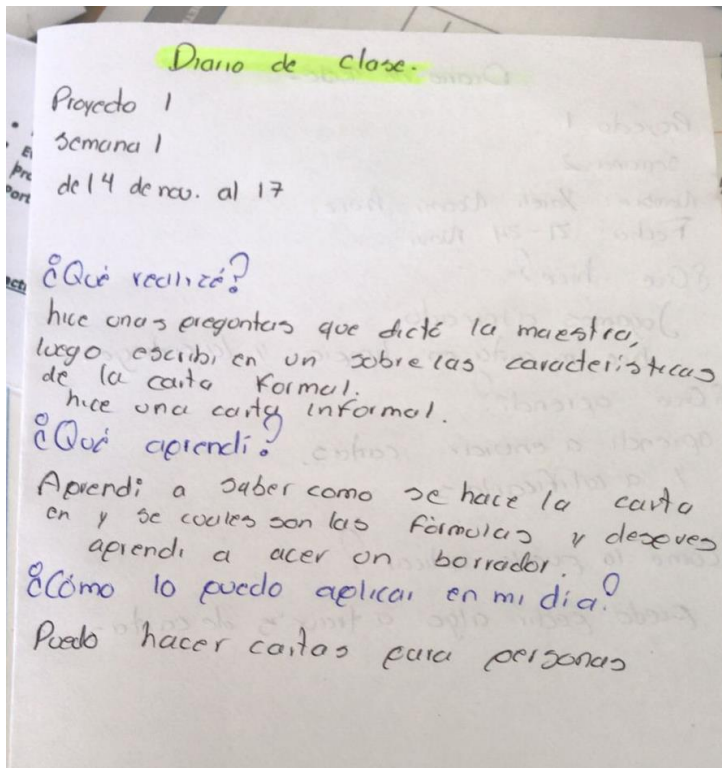 Diario de clase.
Proyecto 1
Semana 1
de 14 de nov. al 17
¿Qué realizé?
hice unas preguntas que dictó la maestra,
luego escribi en un sobre las características
de la carta formal.
hice una carta informal.
¿Qué aprendí?
Aprendi a saber como se hace la carta
en y se cuales son las fórmulas y despues
aprendi a acer un borrador.
¿Cómo lo puedo aplicar en mi día?
Puedo hacer cartas para personas